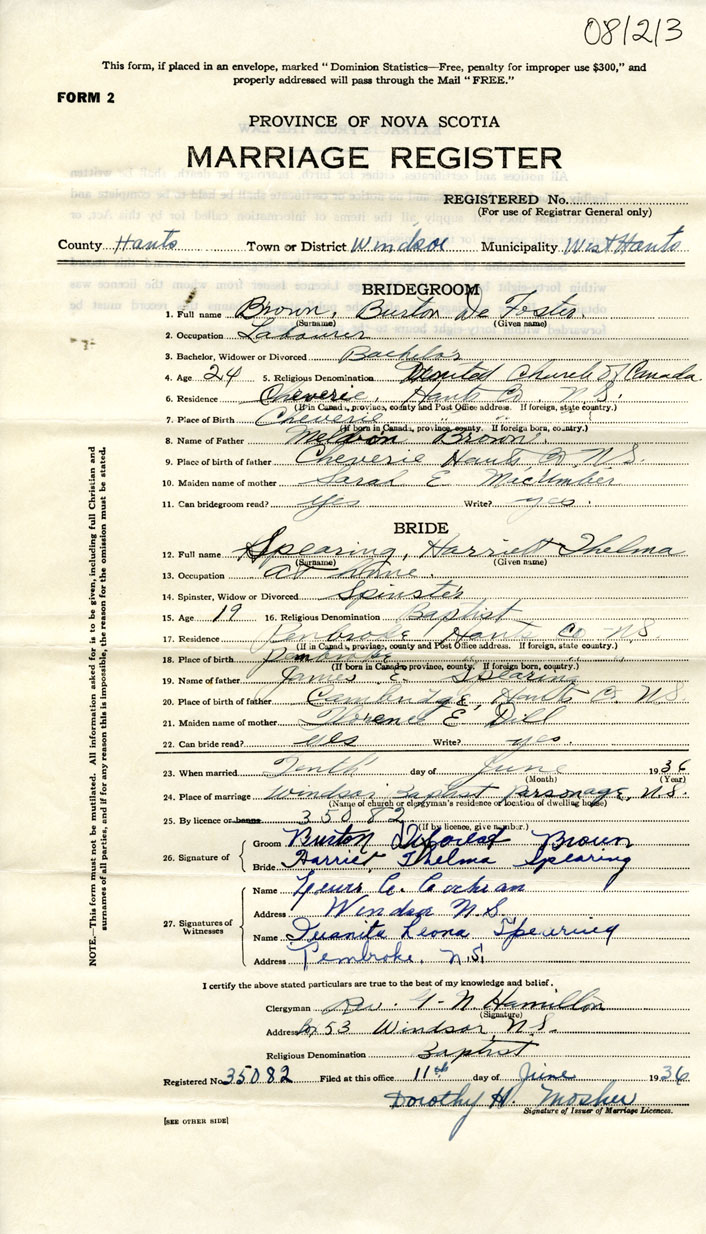 081213
This form, if placed in an envelope, marked "Dominion Statistics—Free, penalty for improper use $300," and
properly addressed will pass through the Mail "FREE."
FORM 2
PROVINCE OF NOVA SCOTIA
MARRIAGE REGISTER
REGISTERED No.
(For use of Registrar General only)
County Hants Town or District Windsor Municipality West Hants
BRIDEGROOM
1. Full name Brown, Burton De Foster
(Surname) (Given name)
2. Occupation Labourer
3. Bachelor, Widower or Divorced Bachelor
4. Age 24 5. Religious Denomination United Church of Canada
6. Residence Cheverie, Hants Co. N.S.
(If in Canada, province, county and Post Office address. If foreign, state country.)
7. Place of Birth Cheverie " " "
(If born in Canada, province, county. If foreign born, country.)
8. Name of Father Brown
9. Place of birth of father Cheverie Hants Co N.S.
10. Maiden name of mother Sarah E.
11. Can bridegroom read? yes Write? yes.
BRIDE
12. Full name Spearing, Harriett Thelma
(Surname) (Given name)
13. Occupation at Home.
14. Spinster, Widow or Divorced Spinster
15. Age 19 16. Religious Denomination Baptist
17. Residence Pembroke Hants Co N S
(If in Canada, province, county and Post Office address. If foreign, state country.)
18. Place of birth Pembroke
(If born in Canada province, county. If foreign born, country.)
19. Name of father James E. Spearing
20. Place of birth of father Cambridge, Hants Co. N.S.
21. Maiden name of mother Florence E. Dill
22. Can bride read? yes Write? yes.
23. When married Tenth day of June 1936
(Month) (Year)
24. Place of marriage Windsor Baptist Parsonage, N.S.
(Name of church or clergyman's residence or location of dwelling house)
25. By licence or banns 35082
(If by licence, give number.)
26. Signature of
Groom Burton DeForest Brown
Bride Harriet Thelma Spearing
27. Signatures of Witnesses
Name C. Cochran
Address Windsor N.S.
Name Juanita Leona Spearing
Address Pembroke, N.S.
I certify the above stated particulars are true to the best of my knowledge and belief.
Clergyman Rev. G. N. Hamilton
(Signature)
Address Bx 53 Windsor, N.S.
Religious Denomination Baptist
Registered No. 35082 Filed at this office 11th day of June 1936
Dorothy H. Mosher
Signature of Issuer of Marriage Licences.
[SEE OTHER SIDE]
NOTE.—This form must not be mutilated. All information asked for is to be given, including full Christian and
surnames of all parties, and if for any reason this is impossible, the reason for the omission must be stated.